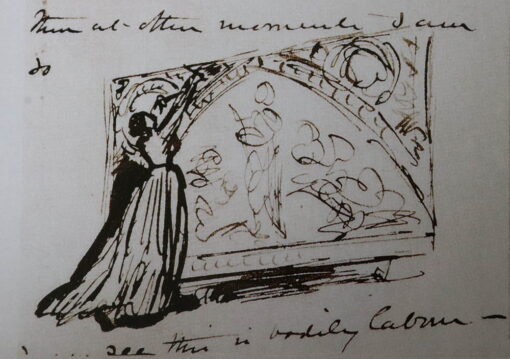 then at other moments I am
so
. . . . see this is bodily labour —